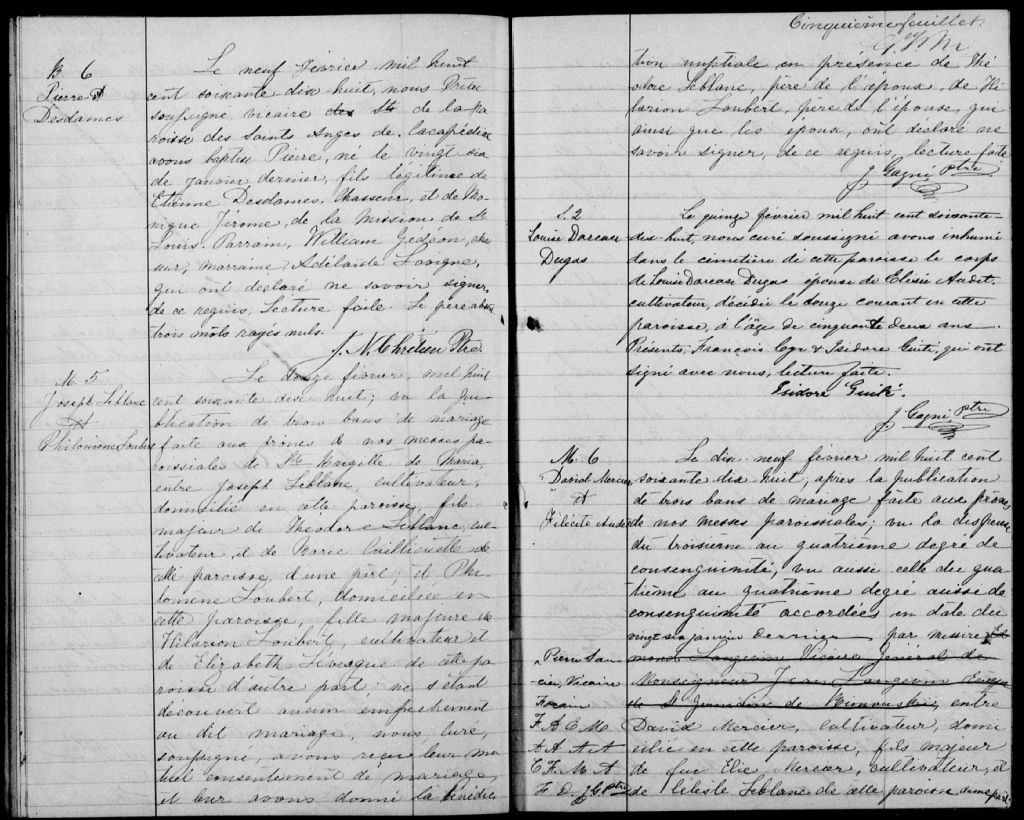 B. 6
Pierre
Desdames
Le neuf février mil huit
cent soixante dix huit, nous Prêtre
soussigné, vicaire des Sts de la pa
roisse des Saints Anges de Cascapédiac
avons baptisé Pierre, né le vingt six
de janvier dernier, fils légitime de
Etienne Desdames, chasseur, et de Mo
nique Jérome, de la mission de St
Louis. Parrain, William Gédéon, chas
seur, marraine, Adélaide Lavigne,
qui ont declaré ne savoir signer,
de ce requis, Lecture faite. Le père absent
trois mots rayés nuls.
J. N. Chrétien Ptre.
M. 5
Joseph Leblanc
&
Philomene Loubert
Le douze février, mil huit
cent soixante dix huit; vu la pu-
blication de trois bans de mariage
faite aux prônes de nos messes pa-
roissiales de Ste Brigitte de Maria,
entre Joseph Leblanc, cultivateur,
domicilié en cette paroisse, fils
majeur de Théodore Leblanc, cul-
tivateur et de Marie Cailliouette de
cette paroisse, d'une part; et Phi-
lomène Loubert, domiciliée en
cette paroisse, fille majeure de
Hilarion Loubert, cultivateur et
de Elizabeth Lévesque de cette pa
roisse d'autre part; ne s'étant
découvert aucun empêchement
au dit mariage, nous curé,
soussigné, avons reçu leur mu
tuel consentement de mariage
et leur avons donné la bénédic
Cinquième feuillet.
tion nuptiale en présence de Thé
odore Leblanc, père de l'époux, de Hi
larion Loubert, père de l'épouse, qui
ainsi que les époux, ont déclaré ne
savoir signer, de ce requis, lecture faite
J. Gagné ptre
S. 2
Louise Darcasse
Dugas
Le quinze février mil huit cent soixante-
dix-huit, nous curé soussigné avons inhumé
dans le cimetière de cette paroisse le corps
de Louise Darcasse Dugas épouse de Elisée Audet,
cultivateur, décédée le douze courant en cette
paroisse, à l'âge de cinquante deux ans.
Présents, François Cyr & Isidore Guité, qui ont
signé avec nous, lecture faite.
Isidore Guité.
J. Gagné ptre
M. 6
David Mercier
&
Félicité Audet
Le dix neuf février mil huit cent
soixante dix huit, après la publication
de trois bans de mariage faite aux prônes
de nos messes paroissiales; vu la dispense
du troisième au quatrième degré de
consenguinité, vu aussi celle du qua
trième au quatrième degré aussi de
consenguinité accordées en date du
vingt six janvier dernier par messire Ed
mond Langevin Vicaire Général de
Monseigneur Jean Langevin Evêque
de St Germain de Rimouski, entre
David Mercier, cultivateur, domi
cilié en cette paroisse, fils majeur
de feu Elie Mercier, cultivateur, et
de Céleste Leblanc de cette paroisse d'une part;
Pierre Sau-
cier, Vicaire
Forain
F. A. E. M.
A A. A. A
C. F. M. A
F. D. J. G. ptre